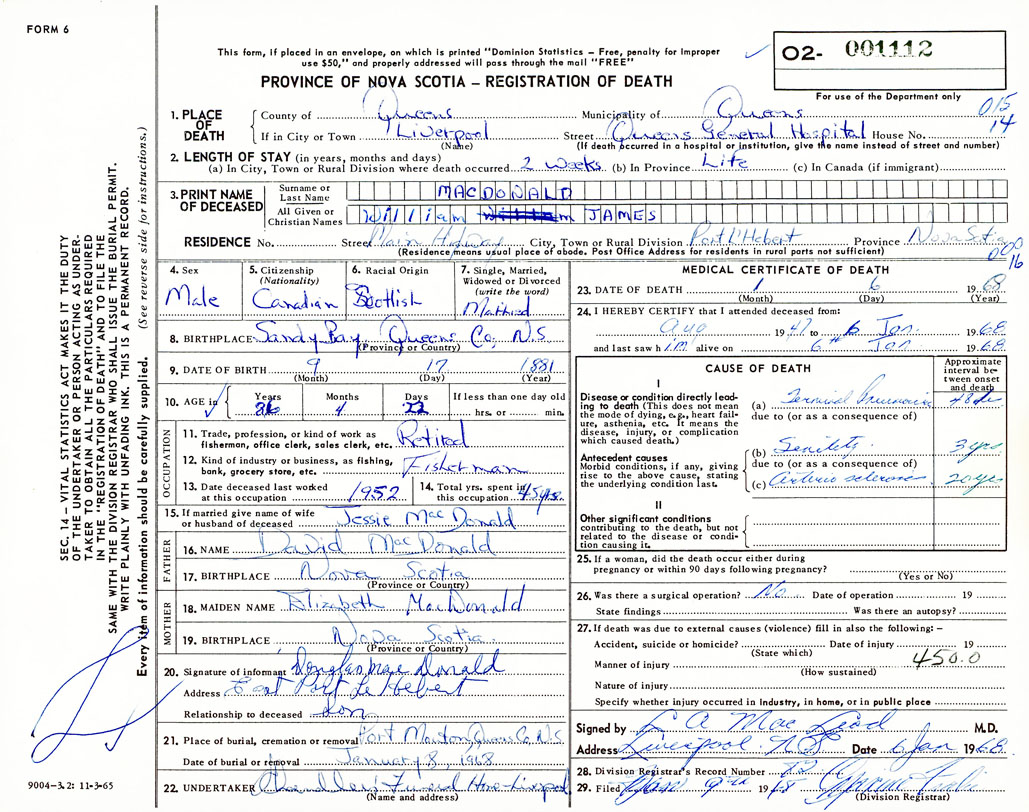 FORM 6
This form, if placed in an envelope, on which is printed "Dominion Statistics – Free, penalty for improper
use $50," and properly addressed will pass through the mail "FREE"
PROVINCE OF NOVA SCOTIA – REGISTRATION OF DEATH
O2- 001112
For use of the Department only
015
14
1. PLACE OF DEATH { County of Queens Municipality of Queens
If in City or Town Liverpool Street Queens General Hospital House No.
(Name) (If death occurred in a hospital or institution, give the name instead of street and number)
2. LENGTH OF STAY (in years, months and days)
(a) In City, Town or Rural Division where death occurred 2 weeks (b) In Province Life (c) In Canada (if immigrant)
3. PRINT NAME OF DECEASED
Surname or Last Name MACDONALD
All Given or Christian Names William JAMES
RESIDENCE No. Street Main Highway City, Town or Rural Division Port L'Hebert Province Nova Scotia
(Residence means usual place of abode. Post Office Address for residents in rural parts not sufficient)
000
16
4. Sex Male
5. Citizenship (Nationality) Canadian
6. Racial Origin Scottish
7. Single, Married, Widowed or Divorced (write the word) Married
8. BIRTHPLACE Sandy Bay, Queens Co, N.S
(Province or Country)
9. DATE OF BIRTH 9 17 1881
(Month) (Day) (Year)
10. AGE in { Years 86 Months 4 Days 22 If less than one day old hrs. or min.
OCCUPATION
11. Trade, profession, or kind of work as fisherman, office clerk, sales clerk, etc. Retired
12. Kind of industry or business, as fishing, bank, grocery store, etc. Fisherman
13. Date deceased last worked at this occupation 1952
14. Total yrs. spent in this occupation 45 yrs.
15. If married give name of wife or husband of deceased Jessie MacDonald
FATHER
16. NAME David MacDonald
17. BIRTHPLACE Nova Scotia
(Province or Country)
MOTHER
18. MAIDEN NAME Elizabeth MacDonald
19. BIRTHPLACE Nova Scotia
(Province or Country)
20. Signature of informant Douglas MacDonald
Address East Port Le Hebert
Relationship to deceased Son
21. Place of burial, cremation or removal Port Mouton, Queens Co, N.S.
Date of burial or removal January 8, 1968
22. UNDERTAKER Chandlers Funeral Home-Liverpool
(Name and address)
MEDICAL CERTIFICATE OF DEATH
23. DATE OF DEATH 1 6 1968
(Month) (Day) (Year)
24. I HEREBY CERTIFY that I attended deceased from:
Aug 1947 to 6 Jan 1968
and last saw him alive on 6th Jan 1968
CAUSE OF DEATH
Approximate interval between onset and death
I
Disease or condition directly leading to death (This does not mean the mode of dying, e.g., heart failure, asthenia, etc. It means the disease, injury, or complication which caused death.)
(a) Terminal Pneumonia 48
due to (or as a consequence of)
Antecedent causes
Morbid conditions, if any, giving rise to the above cause, stating the underlying condition last.
(b) Senility 3 yrs
due to (or as a consequence of)
(c) Arterio sclerosis 20 yes
II
Other significant conditions contributing to the death, but not related to the disease or condition causing it.
25. If a woman, did the death occur either during pregnancy or within 90 days following pregnancy?
(Yes or No)
26. Was there a surgical operation? No Date of operation 19
State findings Was there an autopsy?
27. If death was due to external causes (violence) fill in also the following: –
Accident, suicide or homicide? Date of injury 19
(State which)
Manner of injury 450.0
(How sustained)
Nature of injury
Specify whether injury occurred in industry, in home, or in public place
Signed by A MacLeod M.D.
Address Liverpool N.S Date 6 Jan 1968
28. Division Registrar's Record Number
29. Filed 9th 1968
(Division Registrar)
SEC. 14 – VITAL STATISTICS ACT MAKES IT THE DUTY
OF THE UNDERTAKER OR PERSON ACTING AS UNDER-
TAKER TO OBTAIN ALL THE PARTICULARS REQUIRED
IN THE "REGISTRATION OF DEATH" AND TO FILE THE
SAME WITH THE DIVISION REGISTRAR WHO SHALL ISSUE BURIAL PERMIT.
WRITE PLAINLY WITH UNFADING INK. THIS IS A PERMANENT RECORD.
Every item of information should be carefully supplied. (See reverse side for instructions.)
9004-3.2: 11-3-65